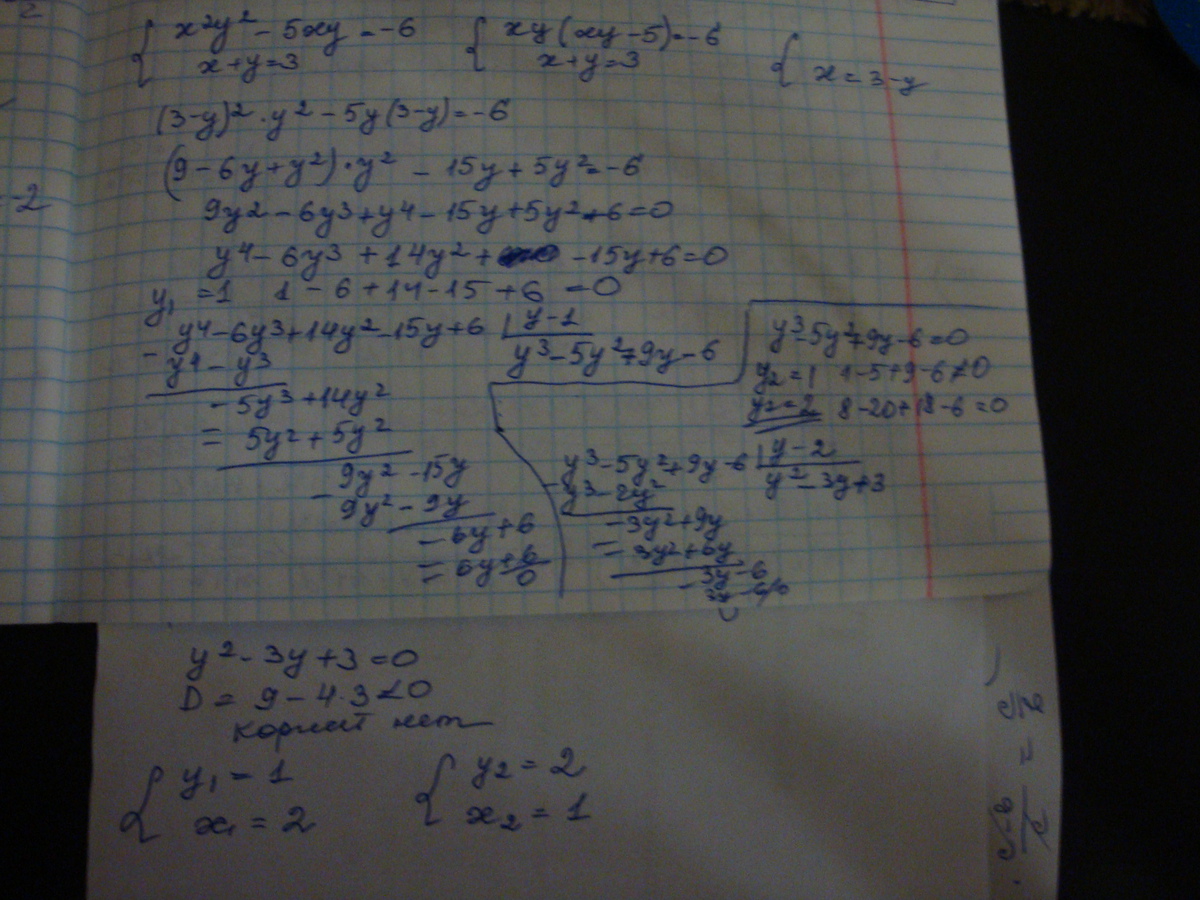 { x²y² - 5xy = -6    { xy(xy - 5) = -6    {
x + y = 3    x + y = 3    x = 3 - y
(3-y)² · y² - 5y(3-y) = -6
(9 - 6y + y²) · y² - 15y + 5y² = -6
-2
9y² - 6y³ + y⁴ - 15y + 5y² + 6 = 0
y⁴ - 6y³ + 14y² + - 15y + 6 = 0
y₁ = 1    1 - 6 + 14 - 15 + 6 = 0
y⁴ - 6y³ + 14y² - 15y + 6 | y - 1
- y⁴ - y³    y³ - 5y² + 9y - 6
- 5y³ + 14y²
= 5y² + 5y²
9y² - 15y
- 9y² - 9y
- 6y + 6
= 6y + 6
0
y³ - 5y² + 9y - 6 = 0
y₂ = 1    1 - 5 + 9 - 6 ≠ 0
y₂ = 2    8 - 20 + 18 - 6 = 0
y³ - 5y² + 9y - 6 | y - 2
- y³ - 2y²    y² - 3y + 3
- 3y² + 9y
= 3y² + 6y
3y - 6
- 3y - 6
y² - 3y + 3 = 0
D = 9 - 4 · 3 < 0
корней нет
{ y₁ = 1    { y₂ = 2
x₁ = 2    x₂ = 1